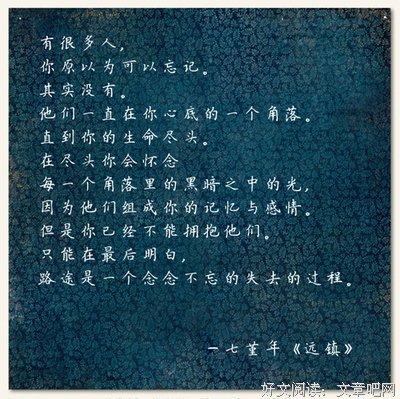 有很多人，
你原以为可以忘记。
其实没有。
他们一直在你心底的一个角落。
直到你的生命尽头。
在尽头你会怀念
每一个角落里的黑暗之中的光，
因为他们组成你的记忆与感情。
但是你已经不能拥抱他们。
只能在最后明白，
路途是一个念念不忘的失去的过程。
一七堇年《远镇》
好文阅读：文章吧网